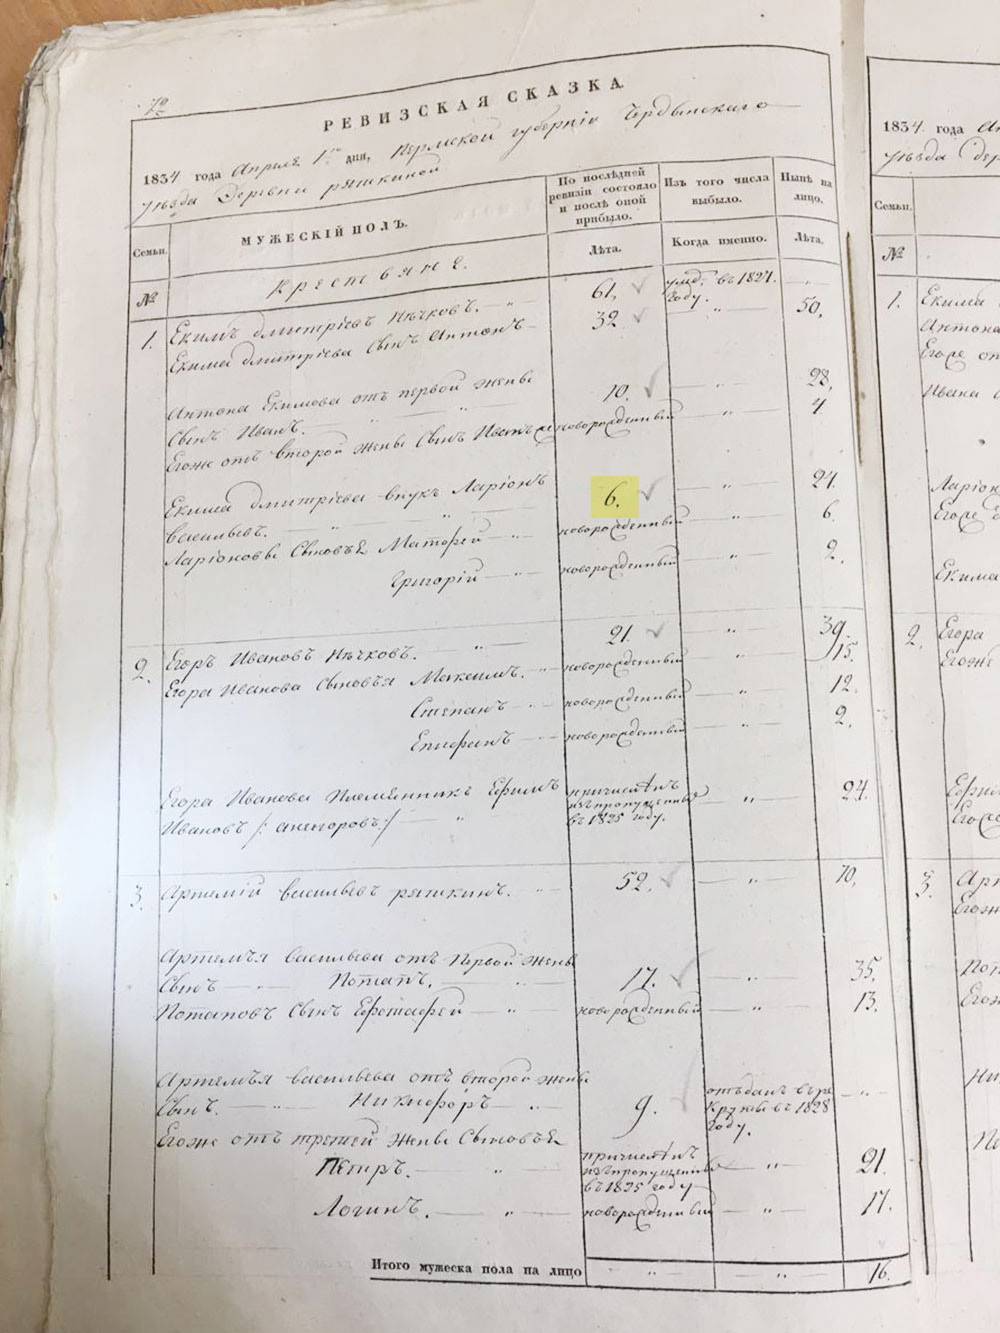 72
РЕВИЗСКАЯ СКАЗКА.
1834 года Апреля 1го дня, Пермской губернiи Чердынскаго
уѣзда Деревни ряшкиной
Семьи. МУЖЕСКIЙ ПОЛЪ. По послѣдней ревизiи состояло и послѣ оной прибыло. Изъ того числа выбыло. Нынѣ на лицо.
№ Лѣта. Когда именно. Лѣта.
Крестьяне.
1. Екимъ дмитрiевъ Пѣчковъ. 61. умд. въ 1821. году.
Екима дмитрiева Сынъ Антонъ 32 " 50.
Антона Екимова отъ первой жены
Сынъ Иванъ. 10. " 28.
Егоже отъ второй жены Сынъ Иванъ же новорожденный " 4
Екима дмитрiева внукъ Ларiонъ
васильевъ. 6. " 24.
Ларiоновы Сыновья Матфей новорожденный " 6.
Григорiй новорожденный " 2.
2. Егоръ Ивановъ Пѣчковъ. 21. " 39.
Егора Иванова Сыновья Максимъ. новорожденный " 15.
Степанъ новорожденный " 12.
Епифанъ новорожденный " 2.
Егора Иванова Племянникъ Ефимъ
Ивановъ причисленъ изъ пропущенныхъ въ 1825 году. " 24.
3. Артемiй васильевъ ряшкинъ. 52. " 70.
Артемья васильева отъ Первой жены
Сынъ Потапъ. 17. " 35.
Потаповъ Сынъ новорожденный " 13.
Артемья васильева отъ второй жены
Сынъ. Никифоръ 9. отъданъ въ ре
круты въ 1828
году.
Егоже отъ третей жены Сыновья
Пётръ. причисленъ изъ пропущенныхъ въ 1825 году " 21.
Логинъ. новорожденный " 17.
Итого мужеска пола на лицо " " 16.
1834 года
уѣзда
Семьи.
№
1. Екима
Антона
Егоже от
Ивана
Ларiон
Егоже
Екима
2. Егора
Егоже
3.
Егоже